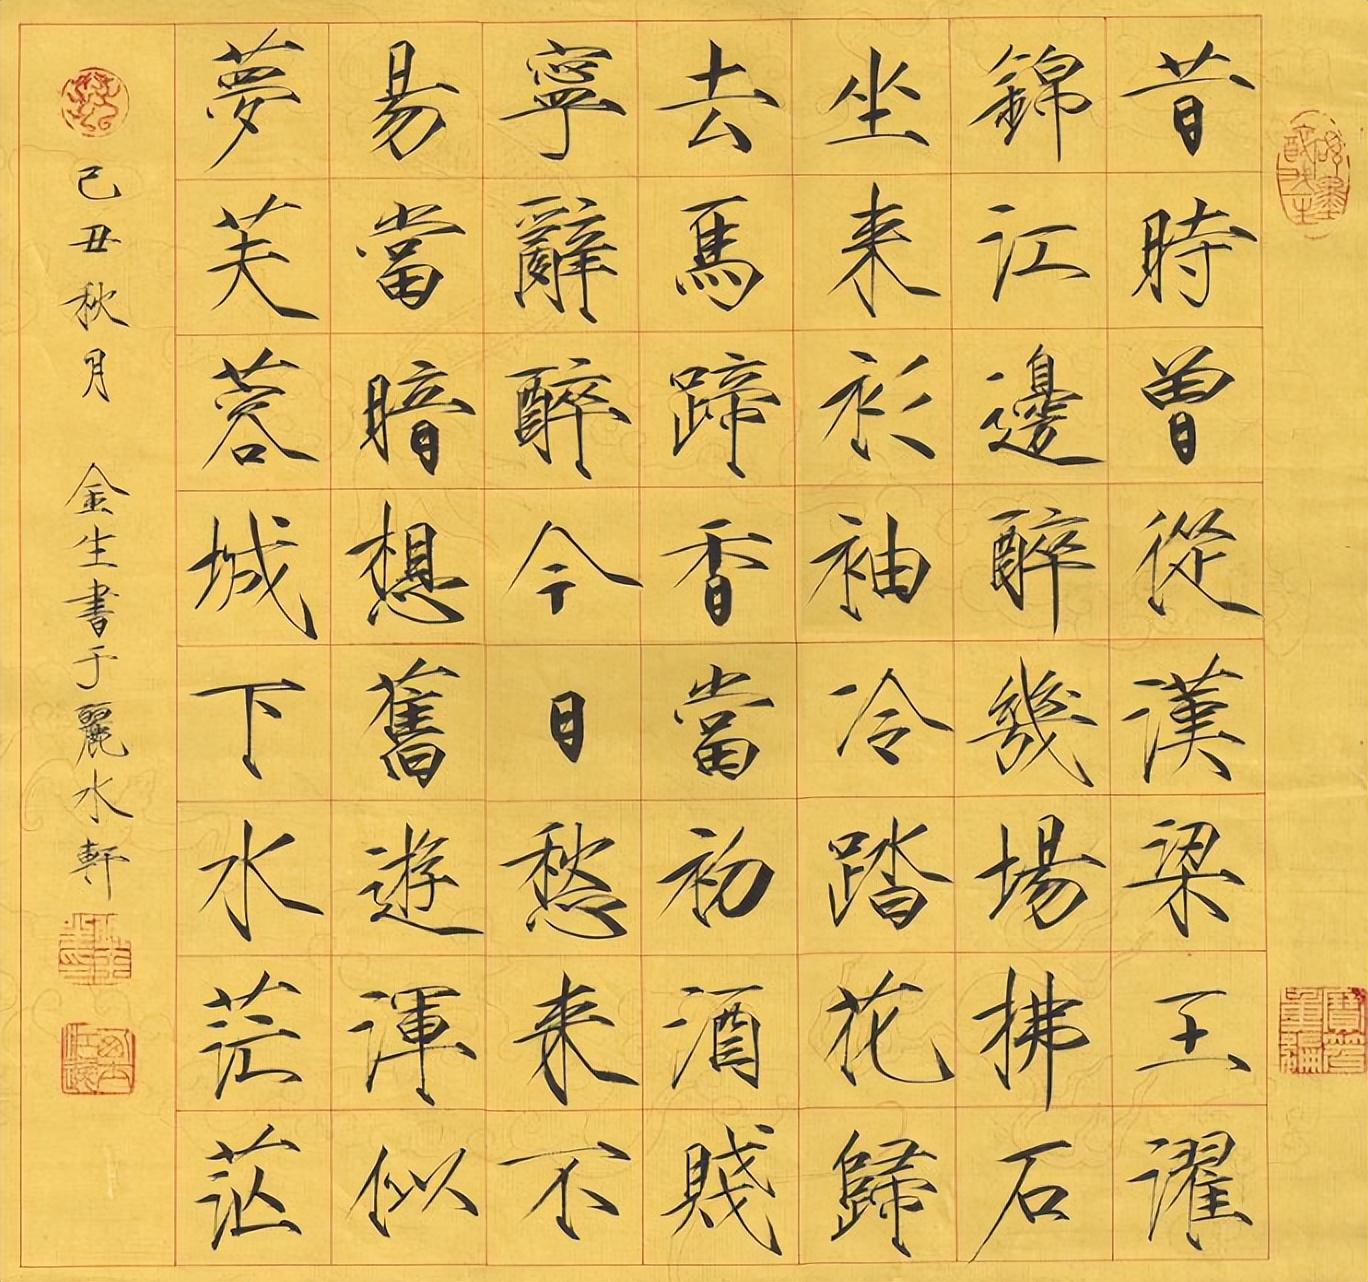 昔時曾從漢梁王濯
錦江邊醉幾場拂石
坐来衫袖冷踏花歸
去馬蹄香當初酒賤
寧辭醉今日愁来不
易當暗想舊遊渾似
夢芙蓉城下水茫茫
己丑秋月 金生書于麗水軒